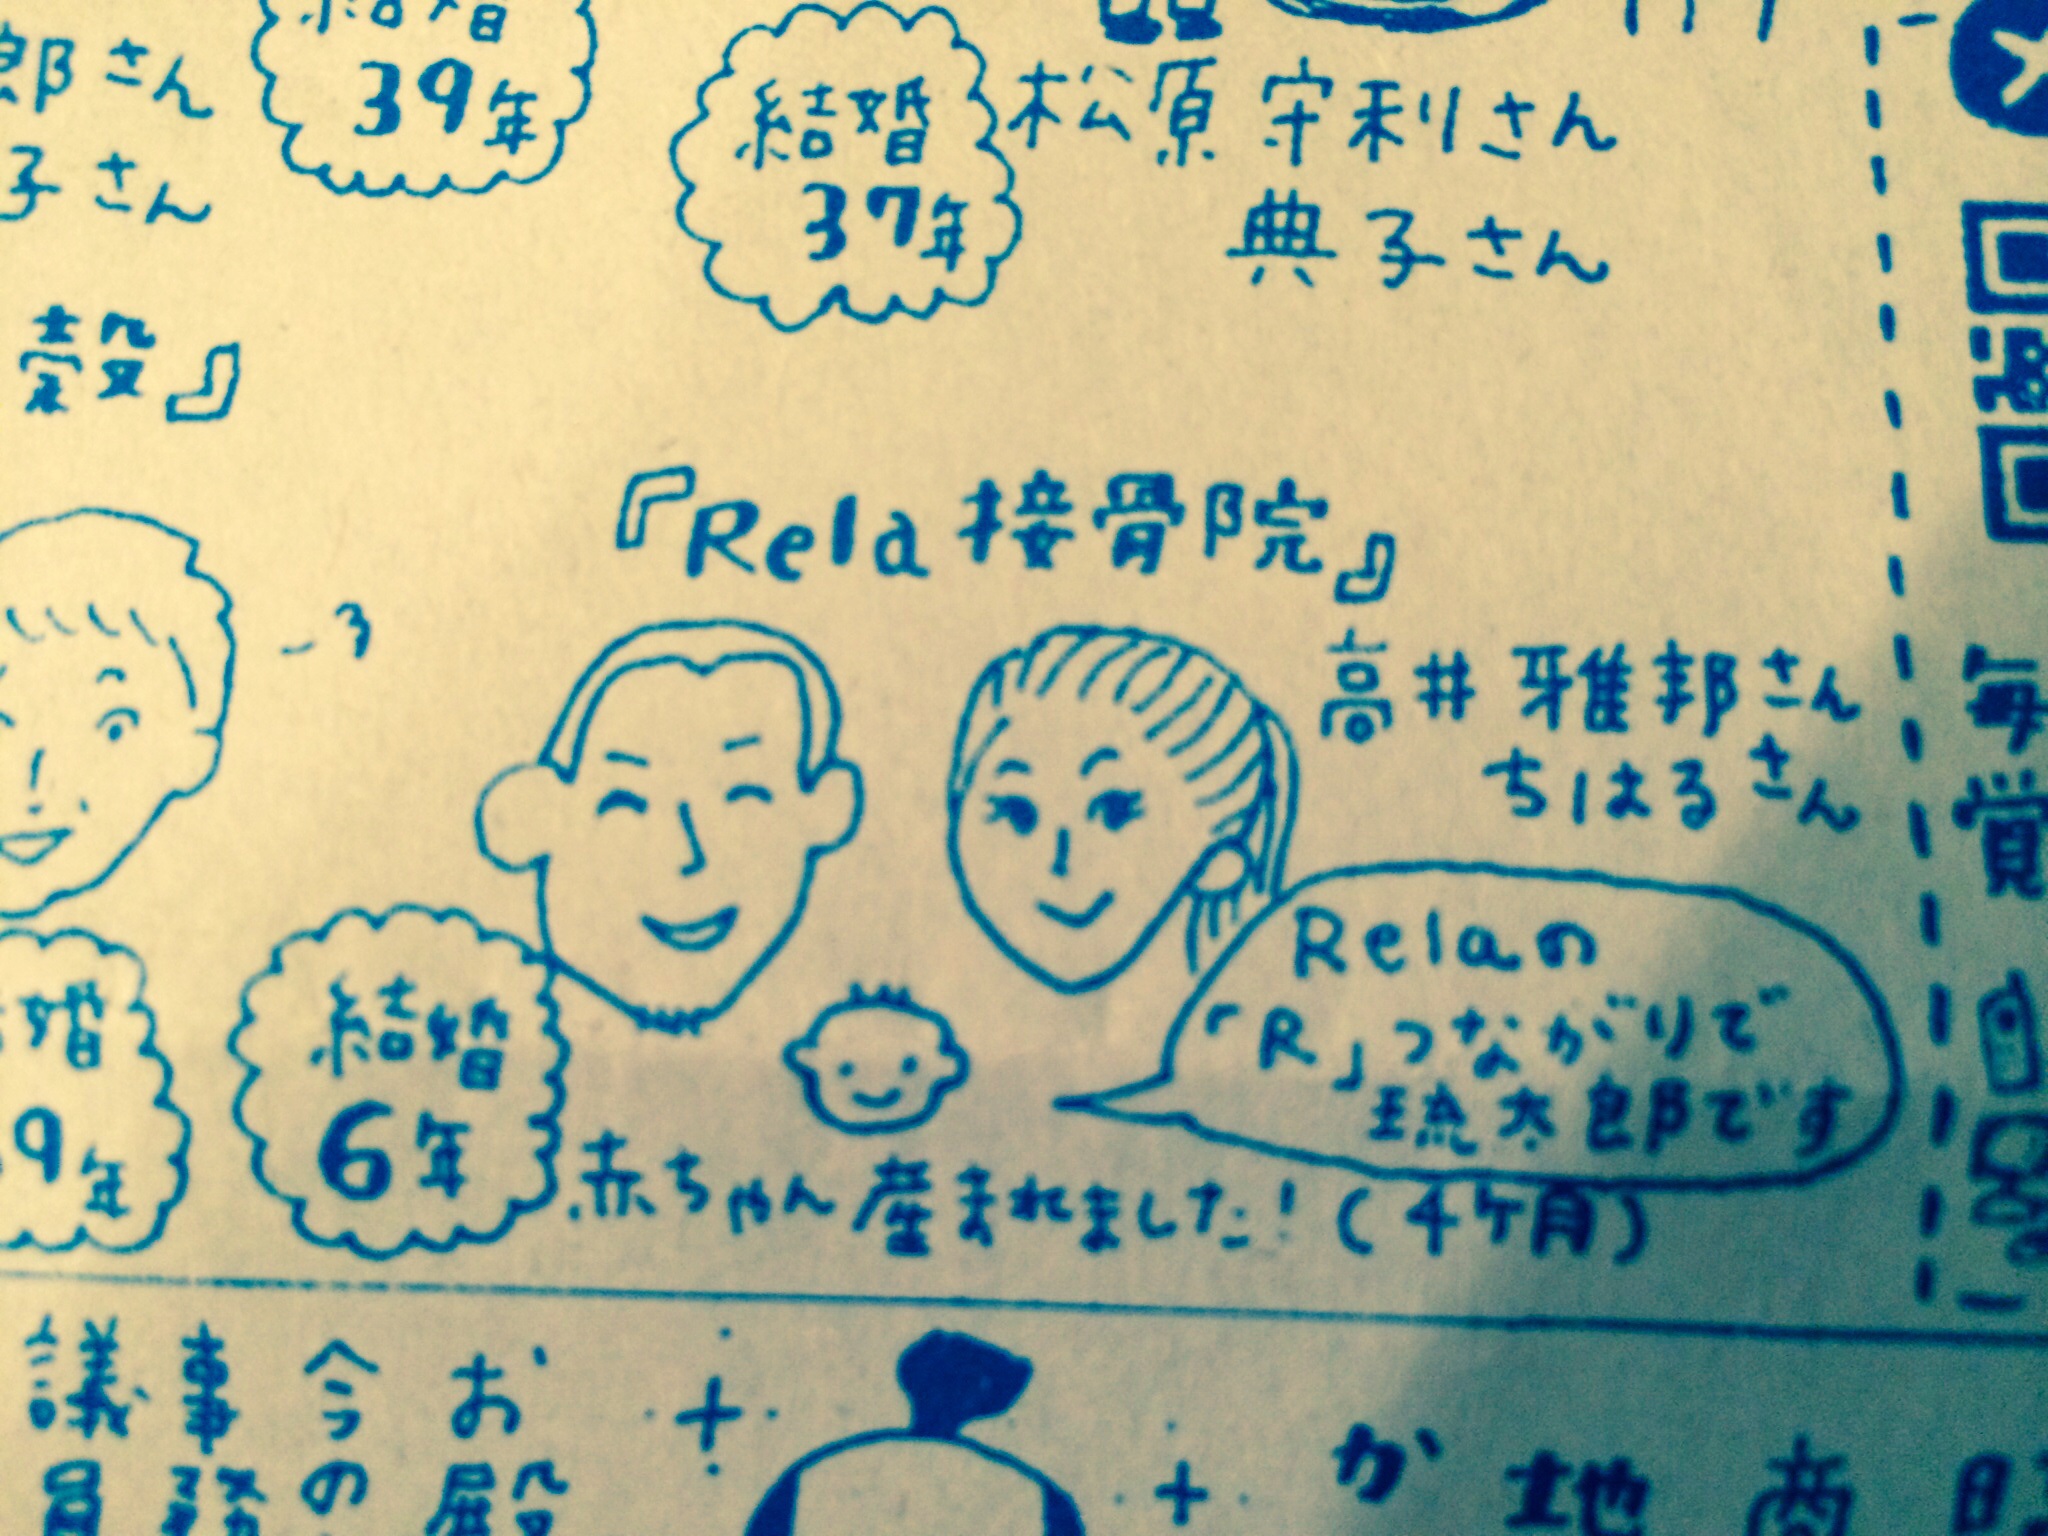 結婚
39年
郎さん
子さん
結婚
37年
松原 守利さん
典子さん
穀』
『Rela接骨院』
高井 雅邦さん
ちはるさん
Relaの
「R」つながりで
琉太郎です
婚
9年
結婚
6年
赤ちゃん産まれました!(4ケ月)
毎
覚
お殿
今の
事務
議員
か
地
商